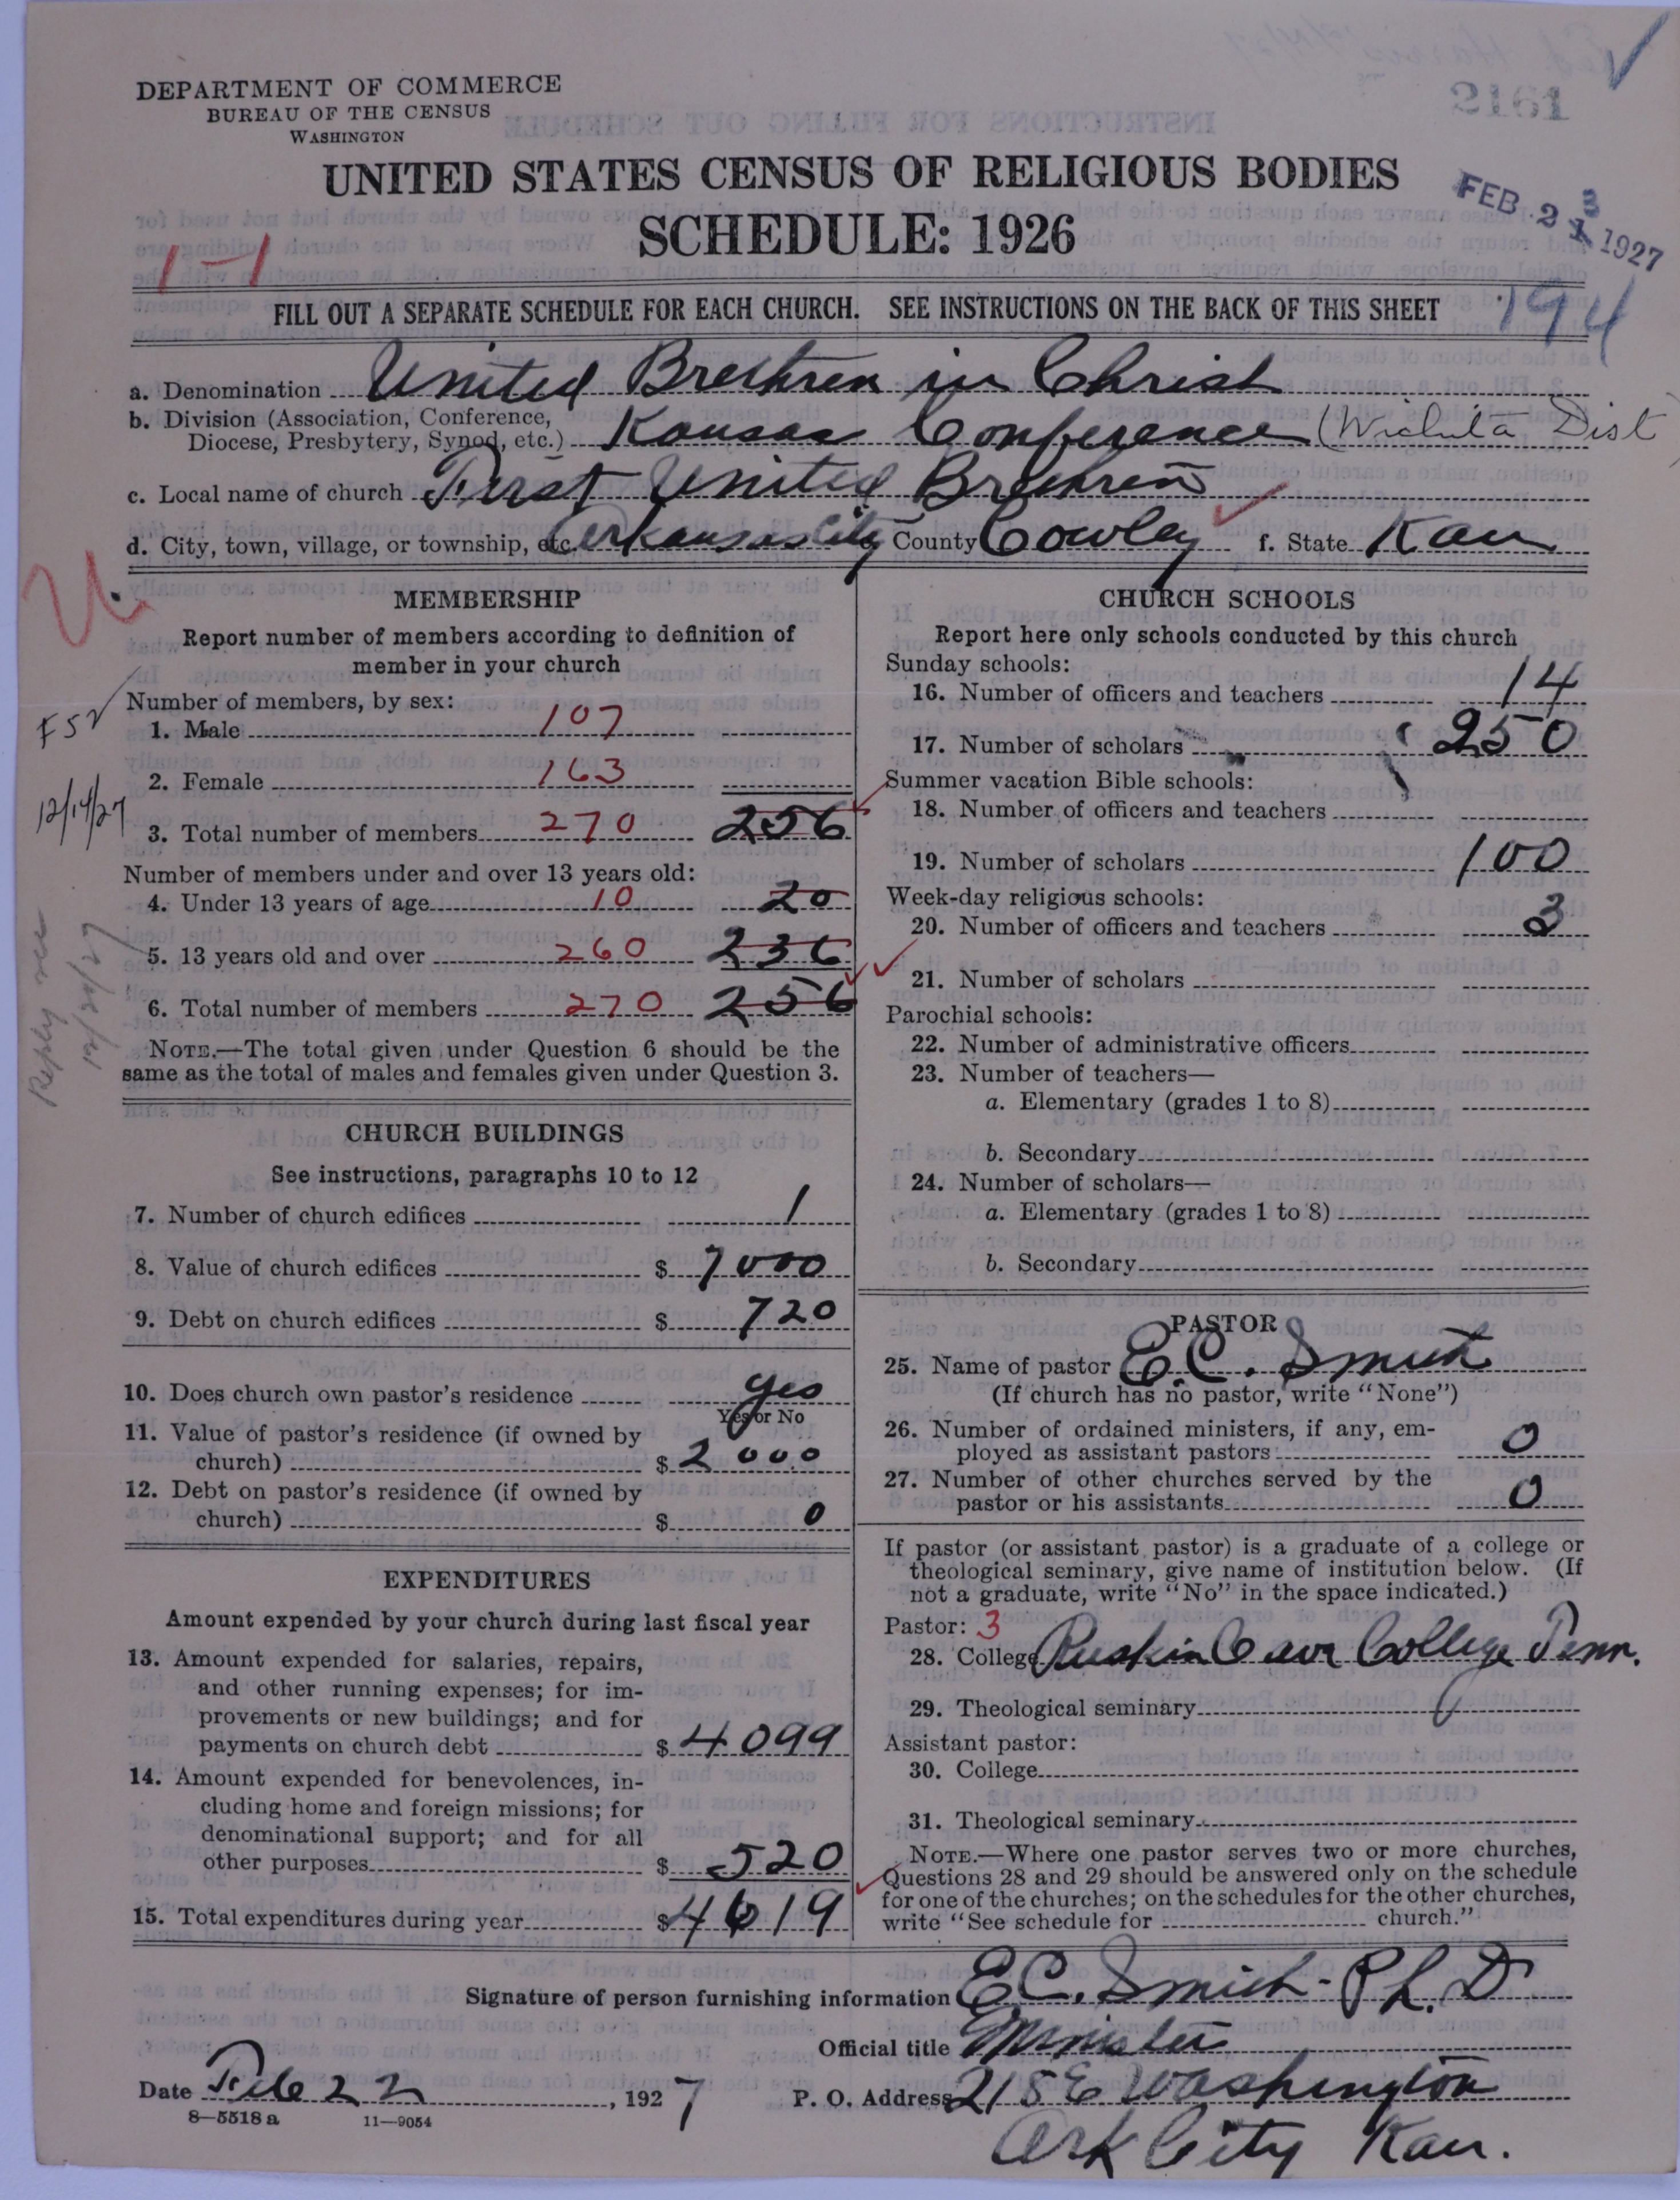 2161
DEPARTMENT OF COMMERCE
BUREAU OF THE CENSUS
WASHINGTON
UNITED STATES CENSUS OF RELIGIOUS BODIES
SCHEDULE: 1926
FEB 23 1927
1-1
FILL OUT A SEPARATE SCHEDULE FOR EACH CHURCH. SEE INSTRUCTIONS ON THE BACK OF THIS SHEET
194
a. Denomination United Brethren in Christ
b. Division (Association, Conference,
Diocese, Presbytery, Synod, etc.) Kansas Conference (Wichita Dist
c. Local name of church First United Brethren
d. City, town, village, or township, etc. Arkansas City County Cowley f. State Kan
MEMBERSHIP
Report number of members according to definition of
member in your church
Number of members, by sex:
1. Male 107
2. Female 163
3. Total number of members 270 256
Number of members under and over 13 years old:
4. Under 13 years of age 10 20
5. 13 years old and over 260 236
6. Total number of members 270 256
NOTE.—The total given under Question 6 should be the
same as the total of males and females given under Question 3.
FSV
12/14/27
Reply rec
12/20/27
CHURCH BUILDINGS
See instructions, paragraphs 10 to 12
7. Number of church edifices 1
8. Value of church edifices $ 7000
9. Debt on church edifices $ 720
10. Does church own pastor's residence yes
Yes or No
11. Value of pastor's residence (if owned by
church) $ 2000
12. Debt on pastor's residence (if owned by
church) $ 0
EXPENDITURES
Amount expended by your church during last fiscal year
13. Amount expended for salaries, repairs,
and other running expenses; for im-
provements or new buildings; and for
payments on church debt $ 4099
14. Amount expended for benevolences, in-
cluding home and foreign missions; for
denominational support; and for all
other purposes $ 520
15. Total expenditures during year $ 4619
CHURCH SCHOOLS
Report here only schools conducted by this church
Sunday schools:
16. Number of officers and teachers 14
17. Number of scholars 250
Summer vacation Bible schools:
18. Number of officers and teachers
19. Number of scholars 100
Week-day religious schools:
20. Number of officers and teachers 3
21. Number of scholars
Parochial schools:
22. Number of administrative officers
23. Number of teachers—
a. Elementary (grades 1 to 8)
b. Secondary
24. Number of scholars—
a. Elementary (grades 1 to 8)
b. Secondary
PASTOR
25. Name of pastor E.C. Smith
(If church has no pastor, write "None")
26. Number of ordained ministers, if any, em-
ployed as assistant pastors 0
27. Number of other churches served by the
pastor or his assistants 0
If pastor (or assistant pastor) is a graduate of a college or
theological seminary, give name of institution below. (If
not a graduate, write "No" in the space indicated.)
Pastor: 3
28. College Ruskin Cave College Tenn.
29. Theological seminary
Assistant pastor:
30. College
31. Theological seminary
NOTE.—Where one pastor serves two or more churches,
Questions 28 and 29 should be answered only on the schedule
for one of the churches; on the schedules for the other churches,
write "See schedule for church."
Signature of person furnishing information E.C. Smith Ph.D
Official title Minister
Date Feb 22, 1927 P. O. Address 218 E Washington
Ark City Kan.
8—5518 a 11—9054